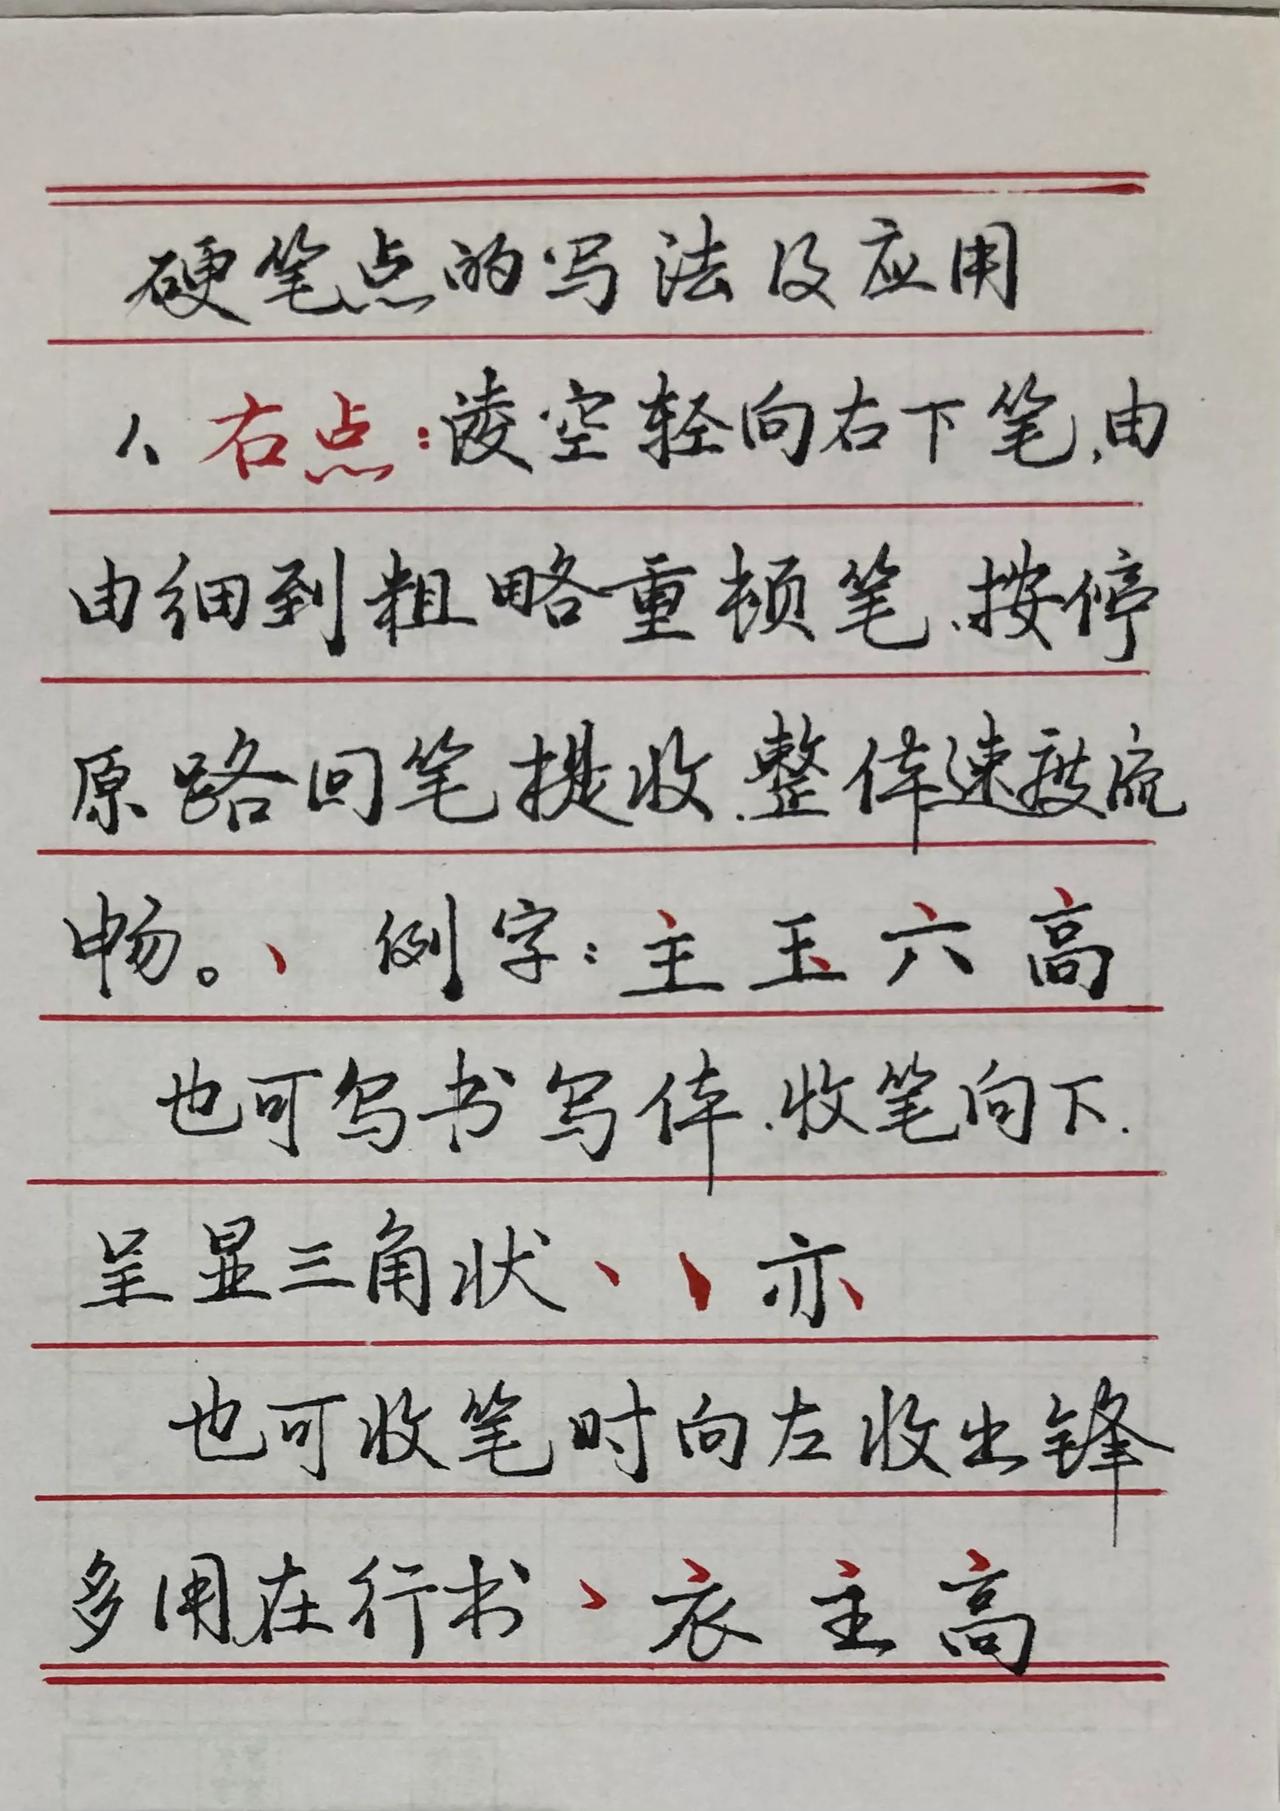 硬笔点的写法及应用
1、右点：凌空轻向右下笔、由
由细到粗略重顿笔、按停
原路回笔提收、整体速度流
畅。、 例字：主 玉 六 高
也可写书写体、收笔向下.
呈显三角状、、亦
也可收笔时向左收出锋
多用在行书、衣 主 高